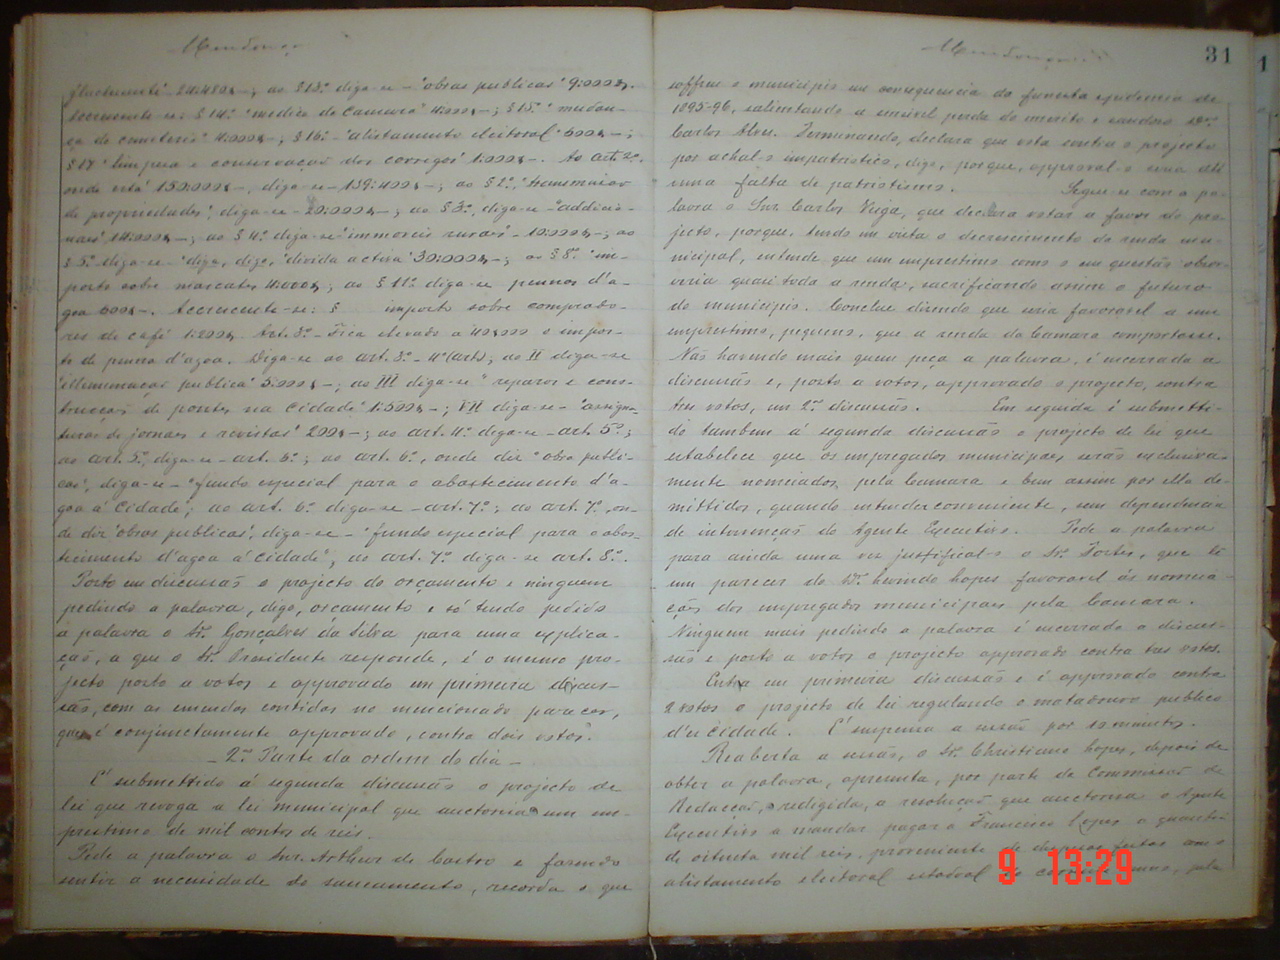 Mendonça
24:480$—; ao § 13º diga-se — "obras publicas" 9:000$.
Accrescente-se: § 14º "medico da Camara" 4:000$—; § 15º mudan-
ça de cemiterio 4:000$—; § 16º "alistamento eleitoral" 600$—;
§ 17 "limpeza e conservação dos corregos" 1:000$—. Ao art. 2º
onde está 150:000$—, diga-se — 159:400$—; ao § 2º, "transmissão
de propriedades", diga-se — 20:000$—; ao § 3º, diga-se "addicio-
naes" 14:000$—; ao § 4º diga-se "immoveis ruraes" 10:000$—; ao
§ 5º diga-se "diga, digo, "divida activa" 30:000$—; ao § 8º "im-
posto sobre mascates 4:000$; ao § 11º diga-se pennas d'a-
goa 600$—. Accrescente-se: § imposto sobre comprado-
res de café 1:200$. Art. 3º — Fica elevado a 40$000 o impos-
to de penna d'agoa. Diga-se ao art. 3º — 4º (art); ao II diga-se
"illuminação publica" 5:000$—; ao III diga-se "reparos e cons-
trucção de pontes na Cidade" 1:500$—; VII diga-se — "assigna-
turas de jornaes e revistas" 200$—; ao art. 4º diga-se — art. 5º;
ao art. 5º, diga-se — art. 6º; ao art. 6º, onde diz "obras publi-
cas", diga-se — "fundo especial para o abastecimento d'a-
goa á Cidade"; ao art. 6º diga-se — art. 7º; ao art. 7º, on-
de diz "obras publicas", diga-se — "fundo especial para o abas-
tecimento d'agoa á Cidade"; ao art. 7º diga-se art. 8º.
Posto em discussão o projecto de orçamento e ninguem
pedindo a palavra, digo, orçamento e só tendo pedido
a palavra o Sr. Gonçalves da Silva para uma explica-
ção, a que o Sr. Presidente responde, é o mesmo pro-
jecto posto a votos e approvado em primeira discus-
são, com as emendas contidas no mencionado parecer,
que é conjunctamente approvado, contra dois votos.
— 2ª Parte da ordem do dia —
É submettido á segunda discussão o projecto de
lei que revoga a lei municipal que auctorisa um em-
prestimo de mil contos de reis.
Pede a palavra o Snr. Arthur de Castro e fazendo
sentir a necessidade do saneamento, recorda o que
Mendonça
31
soffreu o municipio em consequencia da funesta epidemia de
1895-96, salientando a sensivel perda do merito e saudoso Dr.
Carlos Alves. Terminando, declara que vota contra o projecto
por achal-o impatriotico, digo, porque, approval-o seria até
uma falta de patriotismo. Segue-se com a pa-
lavra o Snr. Carlos Veiga, que declara votar a favor do pro-
jecto, porque, tendo em vista o decrescimento da renda mu-
nicipal, entende que um emprestimo como o em questão absor-
veria quasi toda a renda, sacrificando assim o futuro
do municipio. Conclue dizendo que seria favoravel a um
emprestimo, pequeno, que a renda da Camara comportasse.
Não havendo mais quem peça a palavra, é encerrada a
discussão e, posto a votos, approvado o projecto, contra
tres votos, em 2ª discussão. Em seguida é submetti-
do tambem á segunda discussão o projecto de lei que
estabelece que os empregados municipaes serão exclusiva-
mente nomeados pela Camara e bem assim por ella de-
mittidos, quando entender conveniente, sem dependencia
de intervenção do Agente Executivo. Pede a palavra
para ainda uma vez justifical-o o Sr. Fortes, que lê
um parecer do Dr. Levindo Lopes favoravel ás nomea-
ções dos empregados municipaes pela Camara.
Ninguem mais pedindo a palavra é encerrada a discus-
são e posto a votos o projecto approvado contra tres votos.
Entra em primeira discussão e é approvado contra
2 votos o projecto de lei regulando o matadouro publico
d'esta cidade. É suspensa a sessão por 10 minutos.
Reaberta a sessão, o Sr. Christiano Lopes, depois de
obter a palavra, apresenta, por parte da Commissão de
Redacção, redigida, a resolução que auctorisa o Agente
Executivo a mandar pagar a Francisco Lopes a quantia
de oitenta mil reis, proveniente de despezas feitas com o
alistamento eleitoral estadoal pela
9 13:29